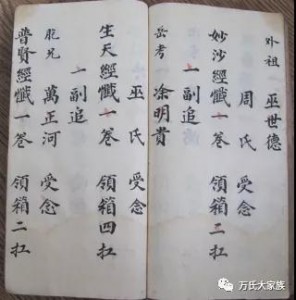 外祖 巫世德
周氏 受念
妙沙經懺一卷 領箱二扛
一副追
岳考 凃明貴
巫氏 受念
生天經懺一卷 領箱四扛
一副追
胞兄 萬正河 受念
普賢經懺一卷 領箱二扛
万氏大家族